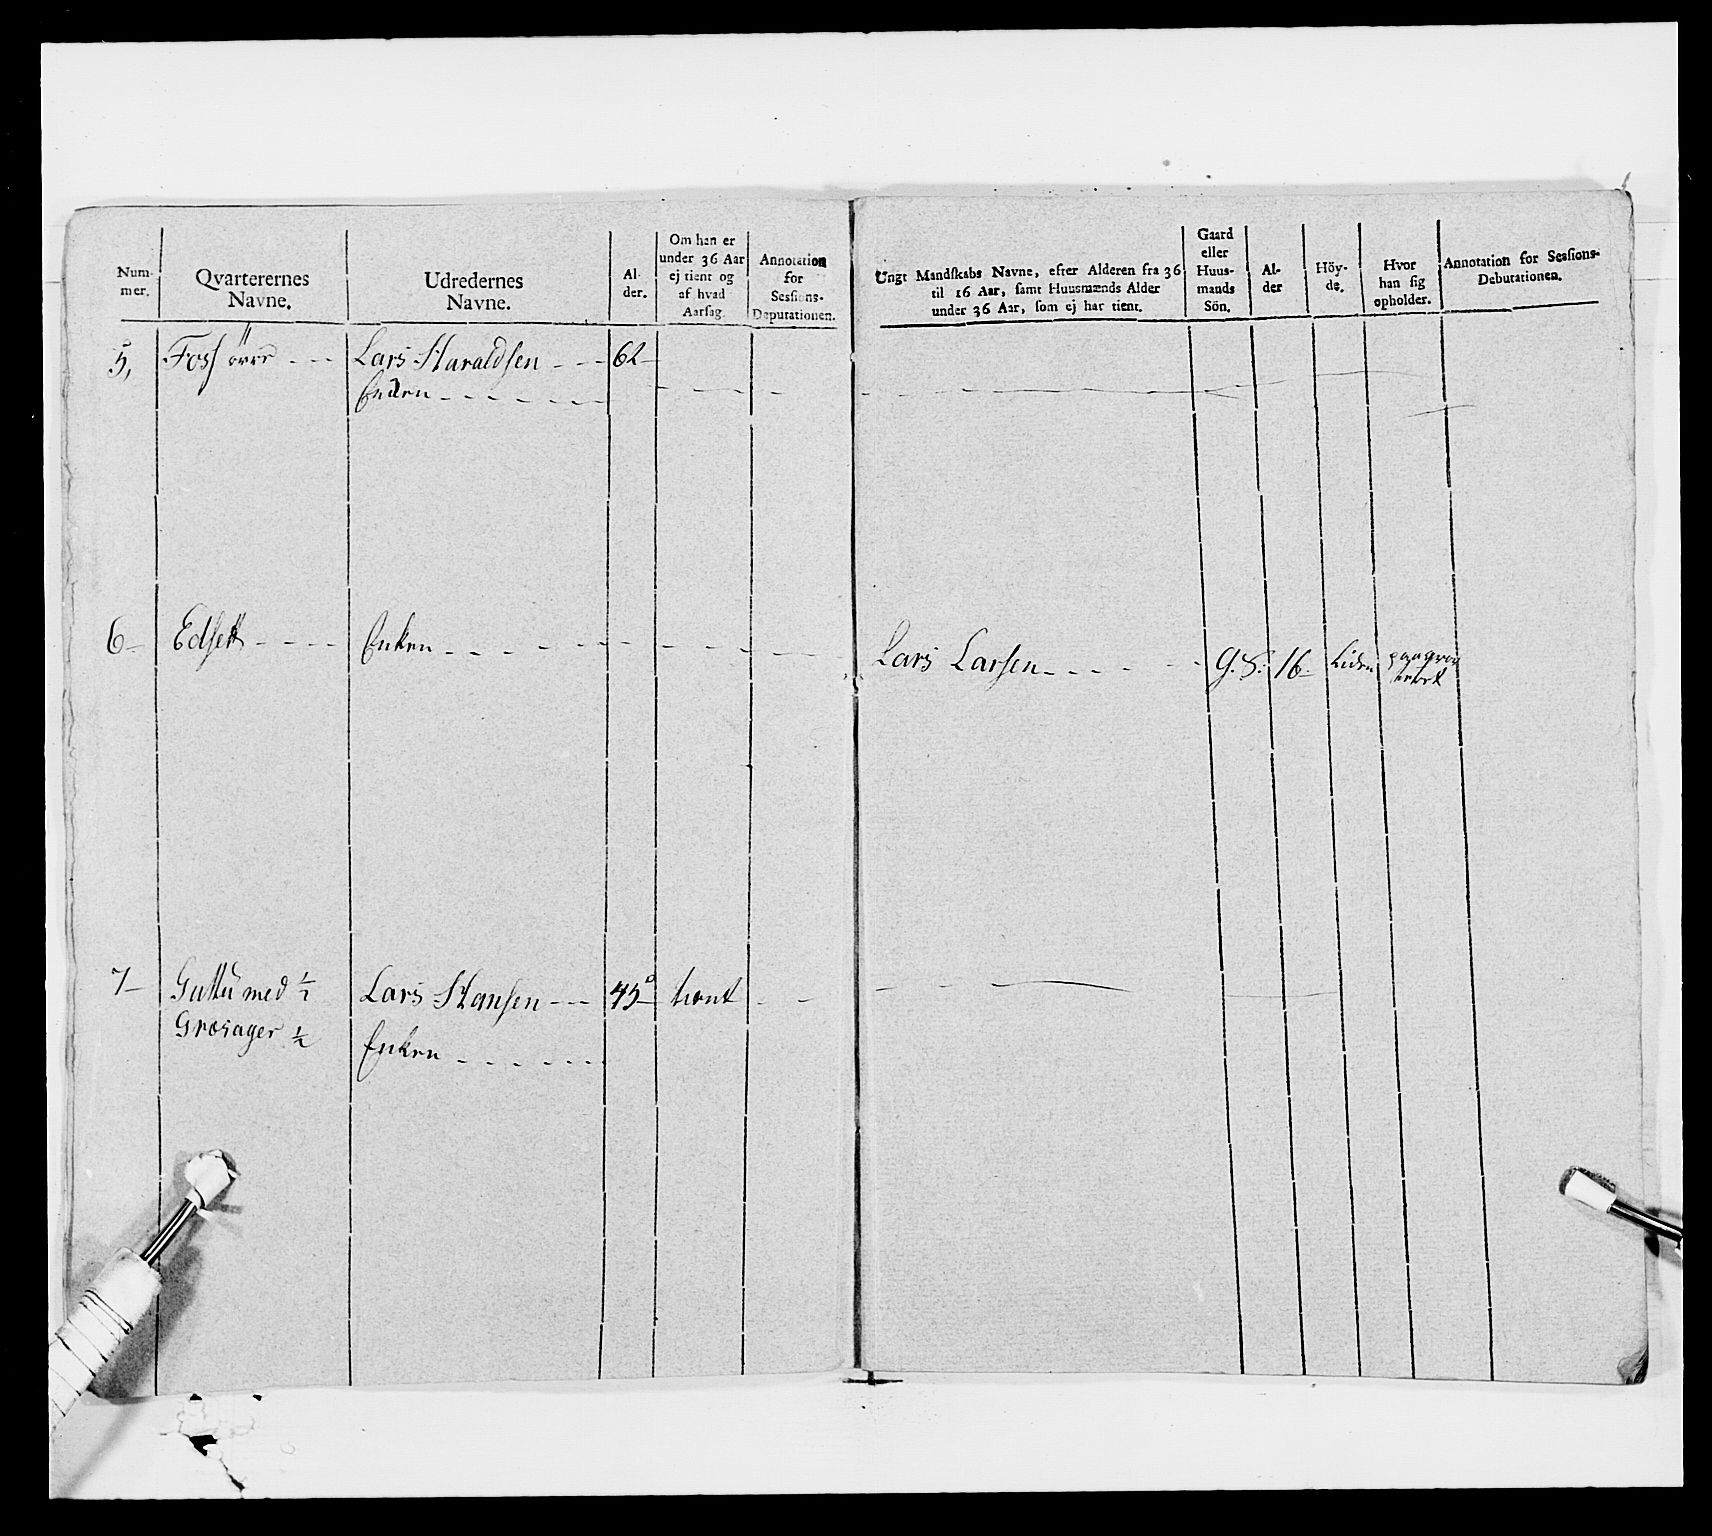 Num-
mer.
Qvarterernes
Navne.
Udredernes
Navne.
Al-
der.
Om han er
under 36 Aar
ej tient og
af hvad
Aarsag.
Annotation
for
Sessions-
Deputationen.
Ungt Mandskabs Navne, efter Alderen fra 36
til 16 Aar, samt Huusmænds Alder
under 36 Aar, som ej har tient.
Gaard
eller
Huus-
mands
Sön.
Al-
der
Höy-
de.
Hvor
han sig
opholder.
Annotation for Sessions-
Debutationen.
5, Foss övre --- Lars Haraldsen --- 62
Enken
6- Edsett ---- Enken
Lars Larsen ---- G. S. 16- Liden paa
7- Guttu med ½ Lars Hansen --- 45 tient
Grøsager ½
Enken